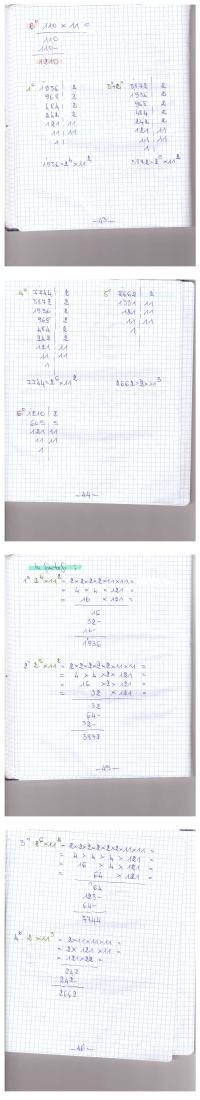 6° 110 × 11 =
110
110-
1210
1° 1936 | 2
968 | 2
484 | 2
242 | 2
121 | 11
11 | 11
1 |
1936=2⁴×11²
3872 | 2
1936 | 2
968 | 2
484 | 2
242 | 2
121 | 11
11 | 11
1 |
3872=2⁵×11²
-43-
4° 7744 | 2
3872 | 2
1936 | 2
968 | 2
484 | 2
242 | 2
121 | 11
11 | 11
1 |
7744=2⁶×11²
5° 2662 | 2
1331 | 11
121 | 11
11 | 11
1 |
2662=2×11³
6° 1210 | 2
605 | 5
121 | 11
11 | 11
1 |
-44-
1° 2⁴×11² = 2×2×2×2×11×11 =
= 4 × 4 × 121 =
= 16 × 121 =
16
32-
16-
1936
2° 2⁵×11² = 2×2×2×2×2×11×11 =
= 4 × 4 × 2 × 121 =
= 16 × 2 × 121 =
= 32 × 121 =
32
64-
32-
3872
-45-
3° 2⁶×11² = 2×2×2×2×2×2×11×11 =
= 4 × 4 × 4 × 121 =
= 16 × 4 × 121 =
= 64 × 121 =
64
128-
64-
7744
4° 2×11³ = 2×11×11×11 =
= 2×121×11 =
= 121×22 =
242
242-
2662
-46-